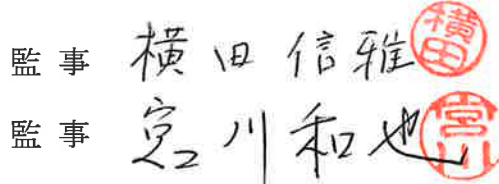 監事 横田信雅 横田
監事 宮川和也 宮川